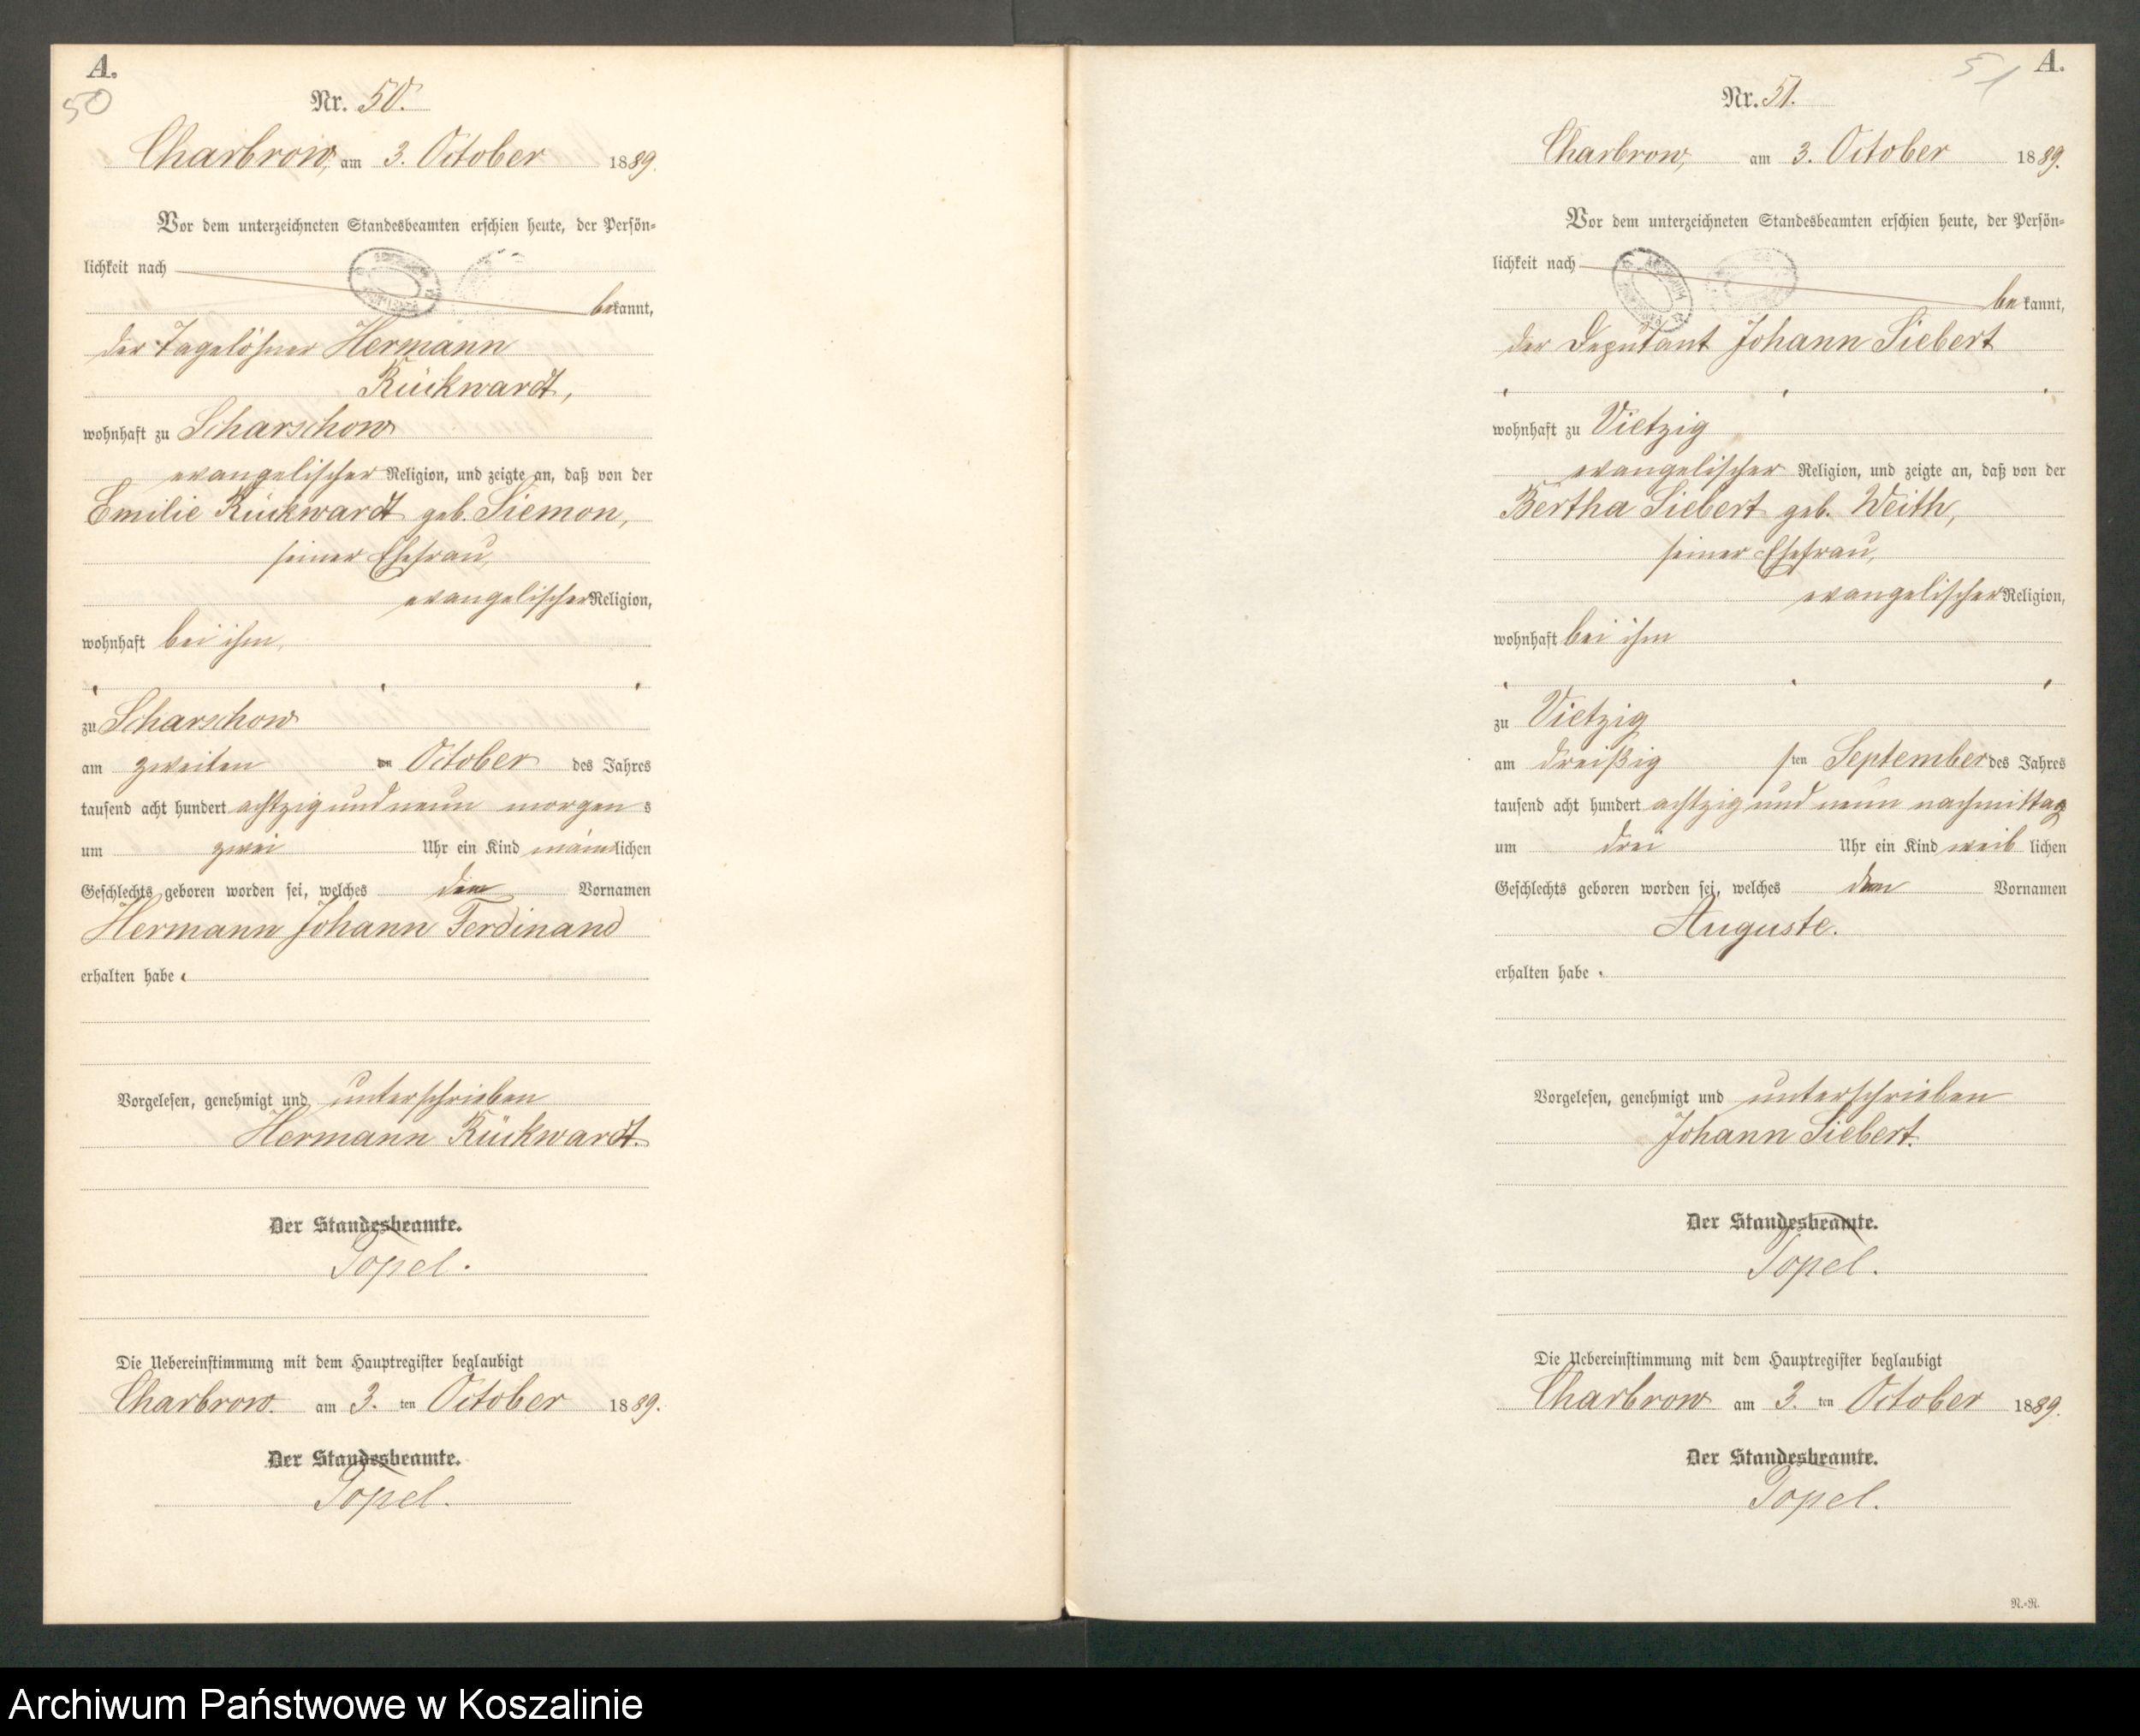 A.
50
Nr. 50.
Charbrow, am 3. October 1889.
Vor dem unterzeichneten Standesbeamten erschien heute, der Persön-
lichkeit nach
bekannt,
der Tagelöhner Hermann
Rückwardt,
wohnhaft zu Scharschow
evangelischer Religion, und zeigte an, daß von der
Emilie Rückwardt geb. Siemon,
seiner Ehefrau,
evangelischer Religion,
wohnhaft bei ihm,
zu Scharschow
am zweiten ten October des Jahres
tausend acht hundert achtzig und neun morgens
um zwei Uhr ein Kind männlichen
Geschlechts geboren worden sei, welches den Vornamen
Hermann Johann Ferdinand
erhalten habe.
Vorgelesen, genehmigt und unterschrieben
Hermann Rückwardt.
Der Standesbeamte.
Topel.
Die Uebereinstimmung mit dem Hauptregister beglaubigt
Charbrow. am 3. ten October 1889.
Der Standesbeamte.
Topel.
51
A.
Nr. 51.
Charbrow, am 3. October 1889.
Vor dem unterzeichneten Standesbeamten erschien heute, der Persön-
lichkeit nach
bekannt,
der Deputant Johann Siebert
wohnhaft zu Vietzig
evangelischer Religion, und zeigte an, daß von der
Bertha Siebert geb. Weith,
seiner Ehefrau,
evangelischer Religion,
wohnhaft bei ihm
zu Vietzig
am dreißigsten September des Jahres
tausend acht hundert achtzig und neun nachmittags
um drei Uhr ein Kind weiblichen
Geschlechts geboren worden sei, welches den Vornamen
Auguste.
erhalten habe.
Vorgelesen, genehmigt und unterschrieben
Johann Siebert.
Der Standesbeamte.
Topel.
Die Uebereinstimmung mit dem Hauptregister beglaubigt
Charbrow am 3. ten October 1889.
Der Standesbeamte.
Topel.
N.-R.
Archiwum Państwowe w Koszalinie